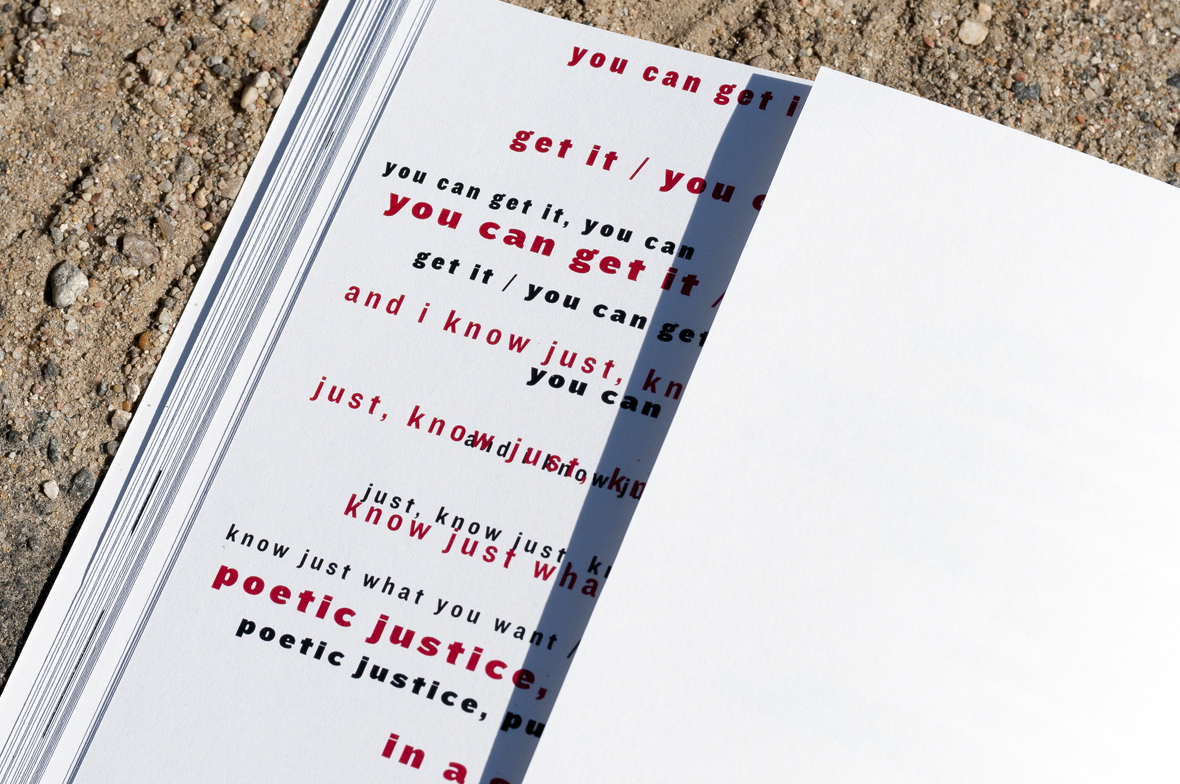 you can get i
get it / you c
you can get it, you can
you can get it /
get it / you can get
and i know just, kn
you can
just, know just, kn
and i know ju
just, know just, kn
know just wha
know just what you want /
poetic justice,
poetic justice, pu
in a s